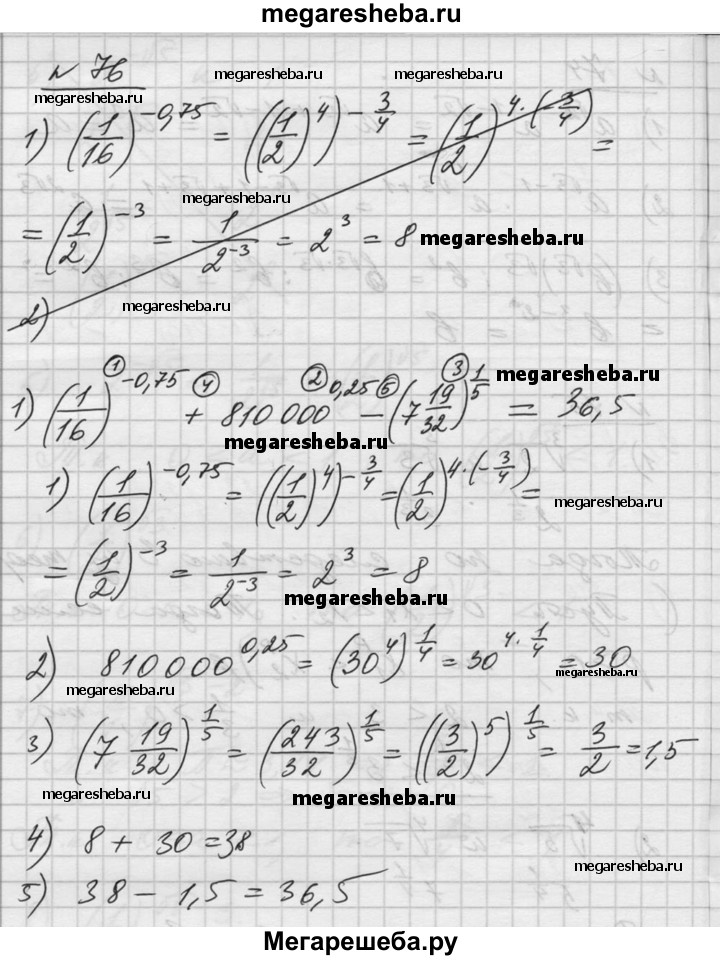 megaresheba.ru
№ 76
megaresheba.ru megaresheba.ru
megaresheba.ru
1) (1/16)^(-0,75) = ((1/2)^4)^(-3/4) = (1/2)^(4·(-3/4)) =
megaresheba.ru
= (1/2)^(-3) = 1/2^(-3) = 2^3 = 8 megaresheba.ru
2) megaresheba.ru
① ④ ② ⑤ ③
1) (1/16)^(-0,75) + 810 000^(0,25) - (7 19/32)^(1/5) = 36,5
megaresheba.ru
megaresheba.ru
1) (1/16)^(-0,75) = ((1/2)^4)^(-3/4) = (1/2)^(4·(-3/4)) =
megaresheba.ru
= (1/2)^(-3) = 1/2^(-3) = 2^3 = 8
megaresheba.ru
2) 810 000^(0,25) = (30^4)^(1/4) = 30^(4·1/4) = 30
megaresheba.ru megaresheba.ru
3) (7 19/32)^(1/5) = (243/32)^(1/5) = ((3/2)^5)^(1/5) = 3/2 = 1,5
megaresheba.ru megaresheba.ru
4) 8 + 30 = 38
megaresheba.ru
5) 38 - 1,5 = 36,5
Мегарешеба.ру